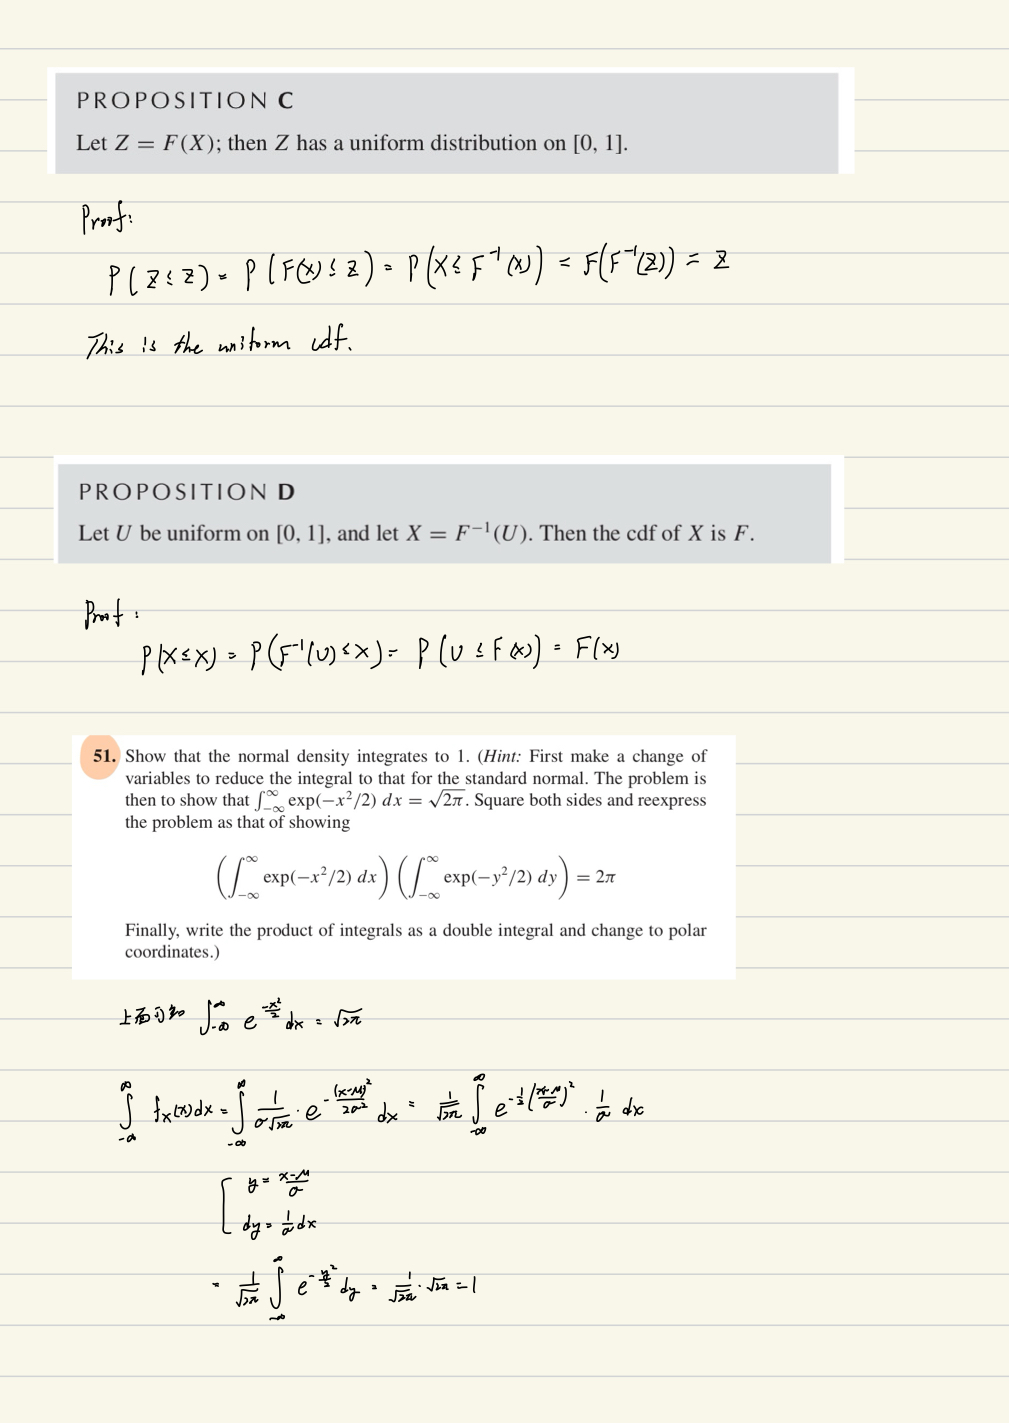 PROPOSITION C
Let Z = F(X); then Z has a uniform distribution on [0, 1].
Proof:
P(Z ≤ z) = P(F(X) ≤ z) = P(X ≤ F⁻¹(x)) = F(F⁻¹(z)) = z
This is the uniform cdf.
PROPOSITION D
Let U be uniform on [0, 1], and let X = F⁻¹(U). Then the cdf of X is F.
Proof:
P(X ≤ x) = P(F⁻¹(U) ≤ x) = P(U ≤ F(x)) = F(x)
51. Show that the normal density integrates to 1. (Hint: First make a change of
variables to reduce the integral to that for the standard normal. The problem is
then to show that ∫_{-∞}^{∞} exp(−x²/2) dx = √2π. Square both sides and reexpress
the problem as that of showing
(∫_{-∞}^{∞} exp(−x²/2) dx) (∫_{-∞}^{∞} exp(−y²/2) dy) = 2π
Finally, write the product of integrals as a double integral and change to polar
coordinates.)
上面可知 ∫_{-∞}^{∞} e^{-x²/2} dx = √2π
∫_{-∞}^{∞} f_X(x)dx = ∫_{-∞}^{∞} 1/(σ√2π) · e^{-(x-μ)²/2σ²} dx = 1/√2π ∫_{-∞}^{∞} e^{-½((x-μ)/σ)²} · 1/σ dx
y = (x-μ)/σ
dy = 1/σ dx
= 1/√2π ∫_{-∞}^{∞} e^{-y²/2} dy = 1/√2π · √2π = 1